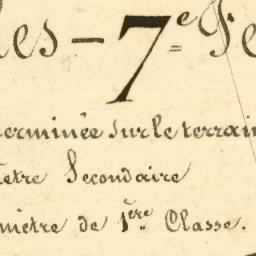 les - 7e = Fe
terminée sur le terrain
ètre Secondaire
mètre de 1ère Classe.